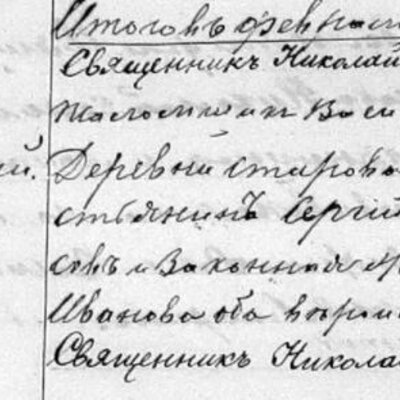 Итого въ феврал
Священникъ Николай
Псаломщикъ Васи
ій. Деревни Старова
стьянинъ Сергій
овъ и законная
Иванова оба
Священникъ Никола